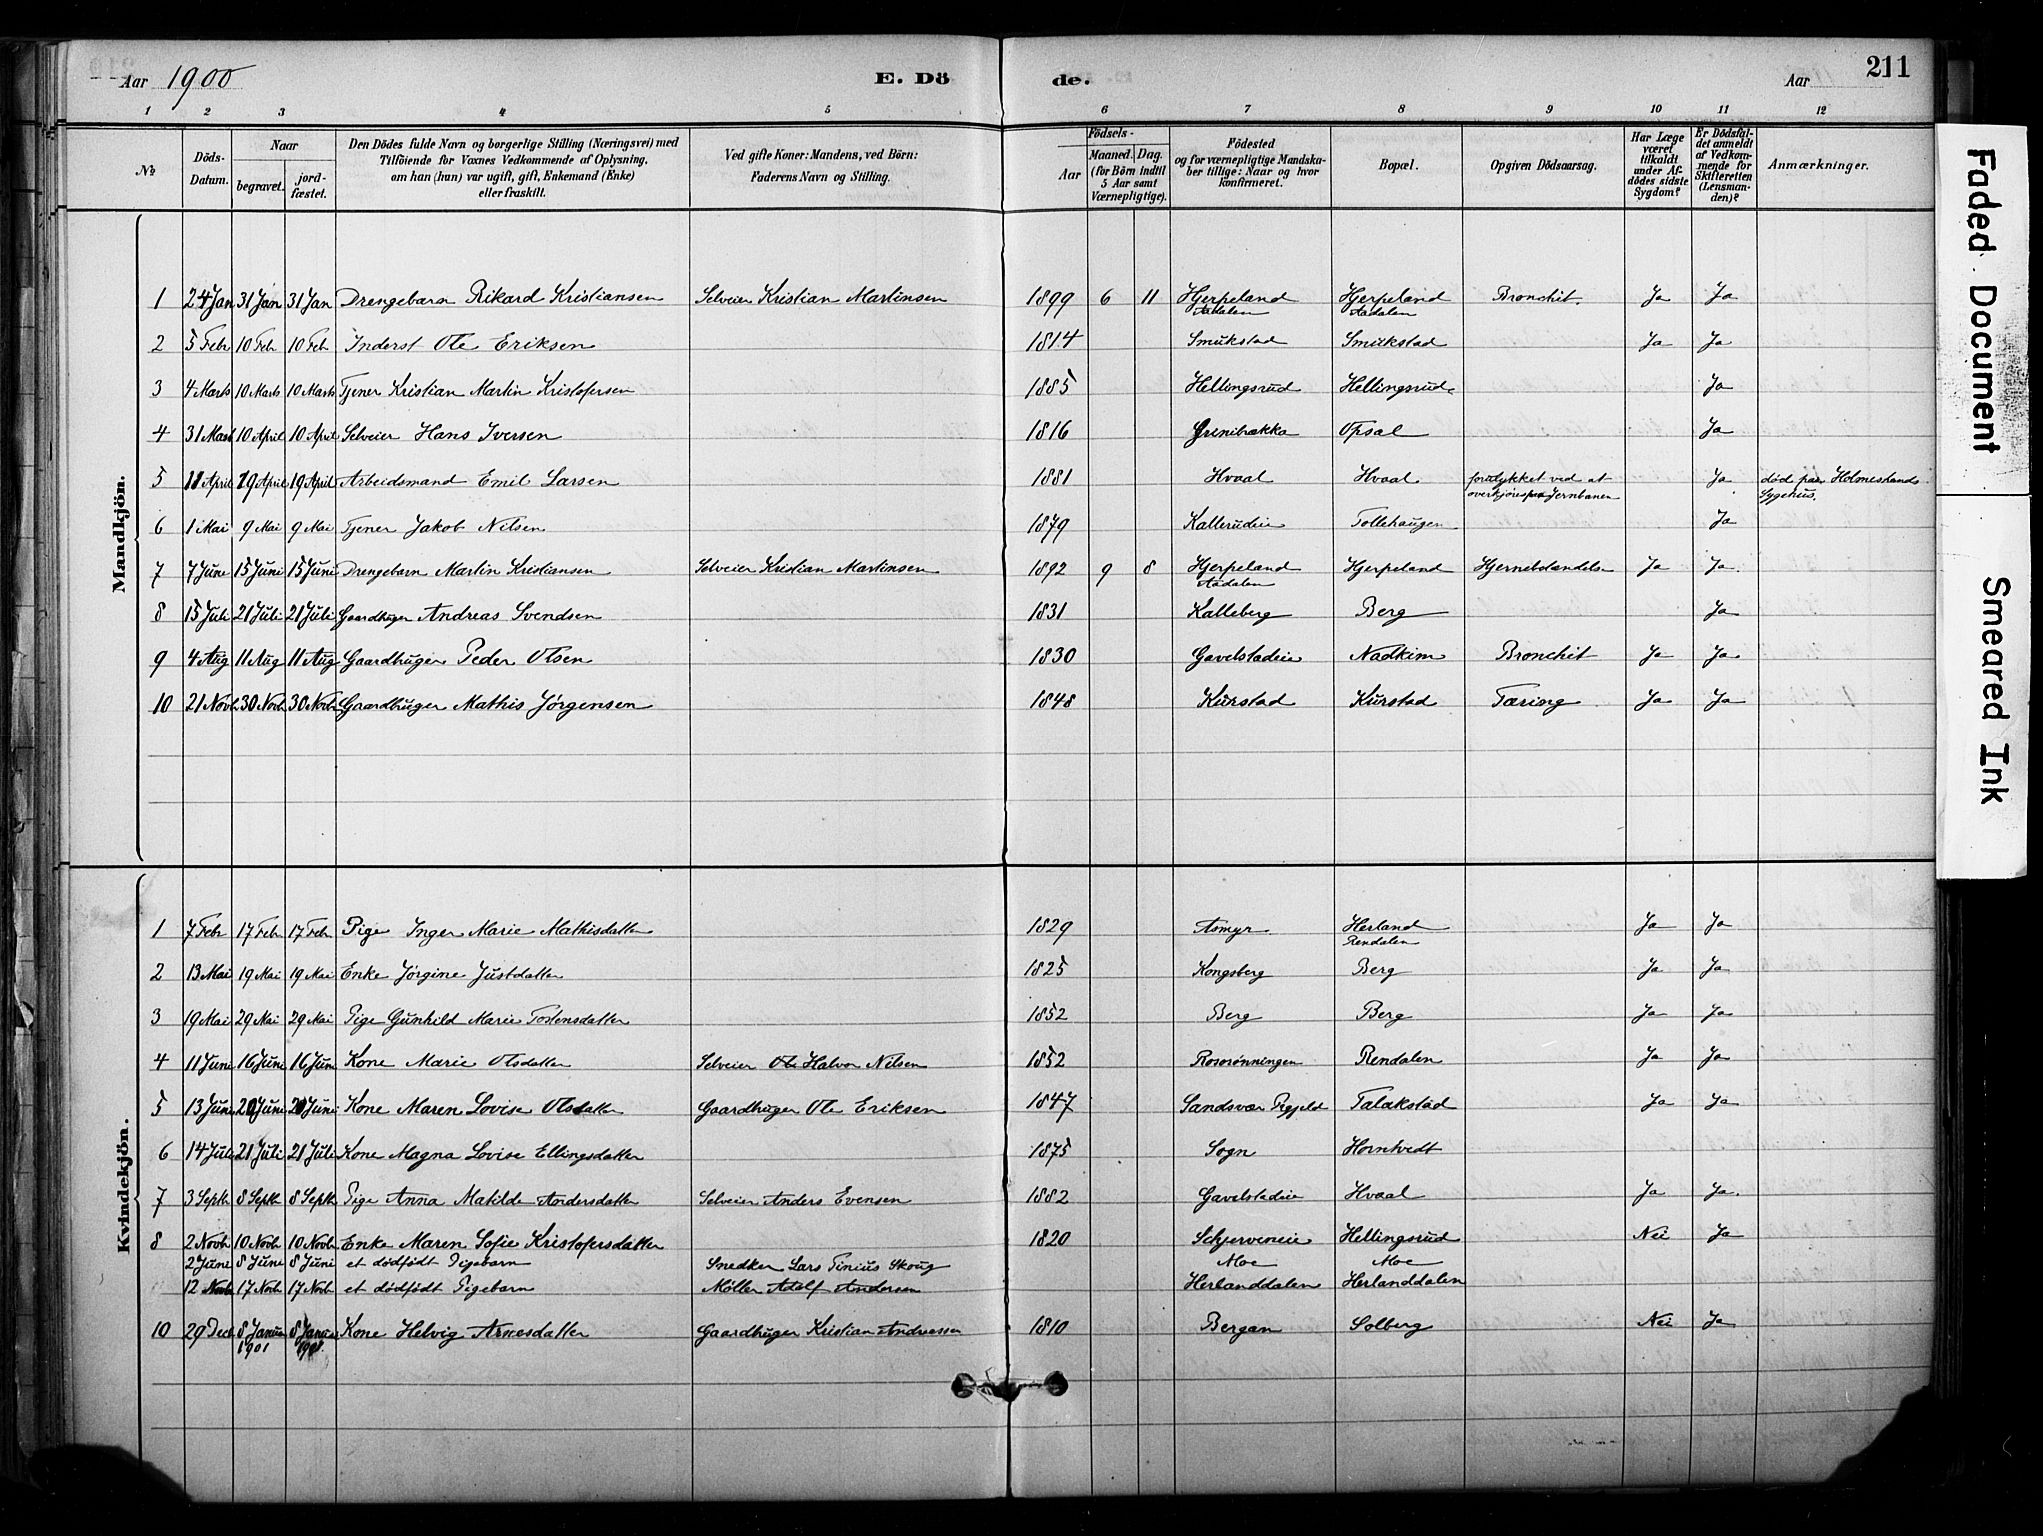 Aar 1900 E. Dö de. Aar 211
1 2 3 4 5 6 7 8 9 10 11 12
№ Döds-Datum. Naar begravet. jord-fæstet. Den Dödes fulde Navn og borgerlige Stilling (Næringsvei) med Tilföiende for Voxnes Vedkommende af Oplysning, om han (hun) var ugift, gift, Enkemand (Enke) eller fraskilt. Ved gifte Koner: Mandens, ved Börn: Faderens Navn og Stilling. Födsels- Aar Maaned. Dag. (for Börn indtil 5 Aar samt Værnepligtige). Födested og for værnepligtige Mandska-ber tillige: Naar og hvor konfirmeret. Bopæl. Opgiven Dödsaarsag. Har Læge været tilkaldt under Af-dödes sidste Sygdom? Er Dödsfal-det anmeldt af Vedkom-mende for Skifteretten (Lensman-den)? Anmærkninger.
Mandkjön.
1 24 Jan 31 Jan 31 Jan Drengebarn Rikard Kristiansen Selveier Kristian Martinsen 1899 6 11 Hjerpeland Aadalen Hjerpeland Aadalen Bronchit. Ja Ja
2 5 Febr 10 Feb 10 Feb Inderst Ole Eriksen 1814 Smukstad Smukstad Ja Ja
3 4 Marts 10 Marts 10 Marts Tjener Kristian Martin Kristofersen 1885 Hellingsrud Hellingsrud Ja
4 31 Mart 10 April 10 April Selveier Hans Iversen 1816 Grinibakka Opsal Ja
5 11 April 19 April 19 April Arbeidsmand Emil Larsen 1881 Hvaal Hvaal forulykket ved at overkjøres paa Jernbanen Ja død paa Holmestrands Sygehus.
6 1 Mai 9 Mai 9 Mai Tjener Jakob Nilsen 1879 Kallerudeie Tollehaugen Ja
7 7 June 15 Juni 15 Juni Drengebarn Martin Kristiansen Selveier Kristian Martinsen 1892 9 8 Hjerpeland Aadalen Hjerpeland Hjernebetændelse Ja Ja.
8 15 Juli 21 Juli 21 Juli Gaardbruger Andreas Svendsen 1831 Kalleberg Berg Ja
9 4 Aug 11 Aug 11 Aug Gaardbruger Peder Olsen 1830 Gavelstadeie Nadkim Bronchit Ja Ja
10 21 Novb 30 Novb 30 Novb Gaardbruger Mathis Jørgensen 1848 Kurstad Kurstad Tæring Ja Ja
Kvindekjön.
1 7 Febr 17 Feb 17 Feb Pige Inger Marie Mathisdatter 1829 Asmyr Herland Rendalen Ja Ja
2 13 Mai 19 Mai 19 Mai Enke Jørgine Justdatter 1825 Kongsberg Berg Ja Ja
3 19 Mai 29 Mai 29 Mai Pige Gunhild Marie Tostensdatter 1852 Berg Berg Ja Ja
4 11 Juni 16 Juni 16 Juni Kone Marie Olsdatter Selveier Ole Halvor Nilsen 1852 Rosorønningen Rendalen Ja Ja
5 13 Juni 20 Juni 20 Juni Kone Maren Lovise Olsdatter Gaardbruger Ole Eriksen 1847 Sandsvær Talakstad Ja Ja
6 14 Juli 21 Juli 21 Juli Kone Magna Lovise Ellingsdatter 1875 Sogn Horntvedt
7 3 Septb 8 Septb 8 Septb Pige Anna Matilde Andersdatter Selveier Anders Evensen 1882 Gavelstadeie Hvaal Ja Ja.
8 2 Novb 10 Novb 10 Novb Enke Maren Sofie Kristofersdatter 1820 Schjerveneie Hellingsrud Nei Ja
2 June 8 Juni 8 Juni et dødfødt Pigebarn Snedker Lars Tinius Skoug Moe Moe
12 Novb 17 Novb 17 Novb et dødfødt Pigebarn Møller Adolf Andersen Herlanddalen Herlanddalen
10 29 Decb 8 Januar 1901 8 Januar 1901. Kone Helvig Arnesdatter Gaardbruger Kristian Andreassen 1810 Bergan Solberg Nei Ja
Faded Document
Smeared Ink